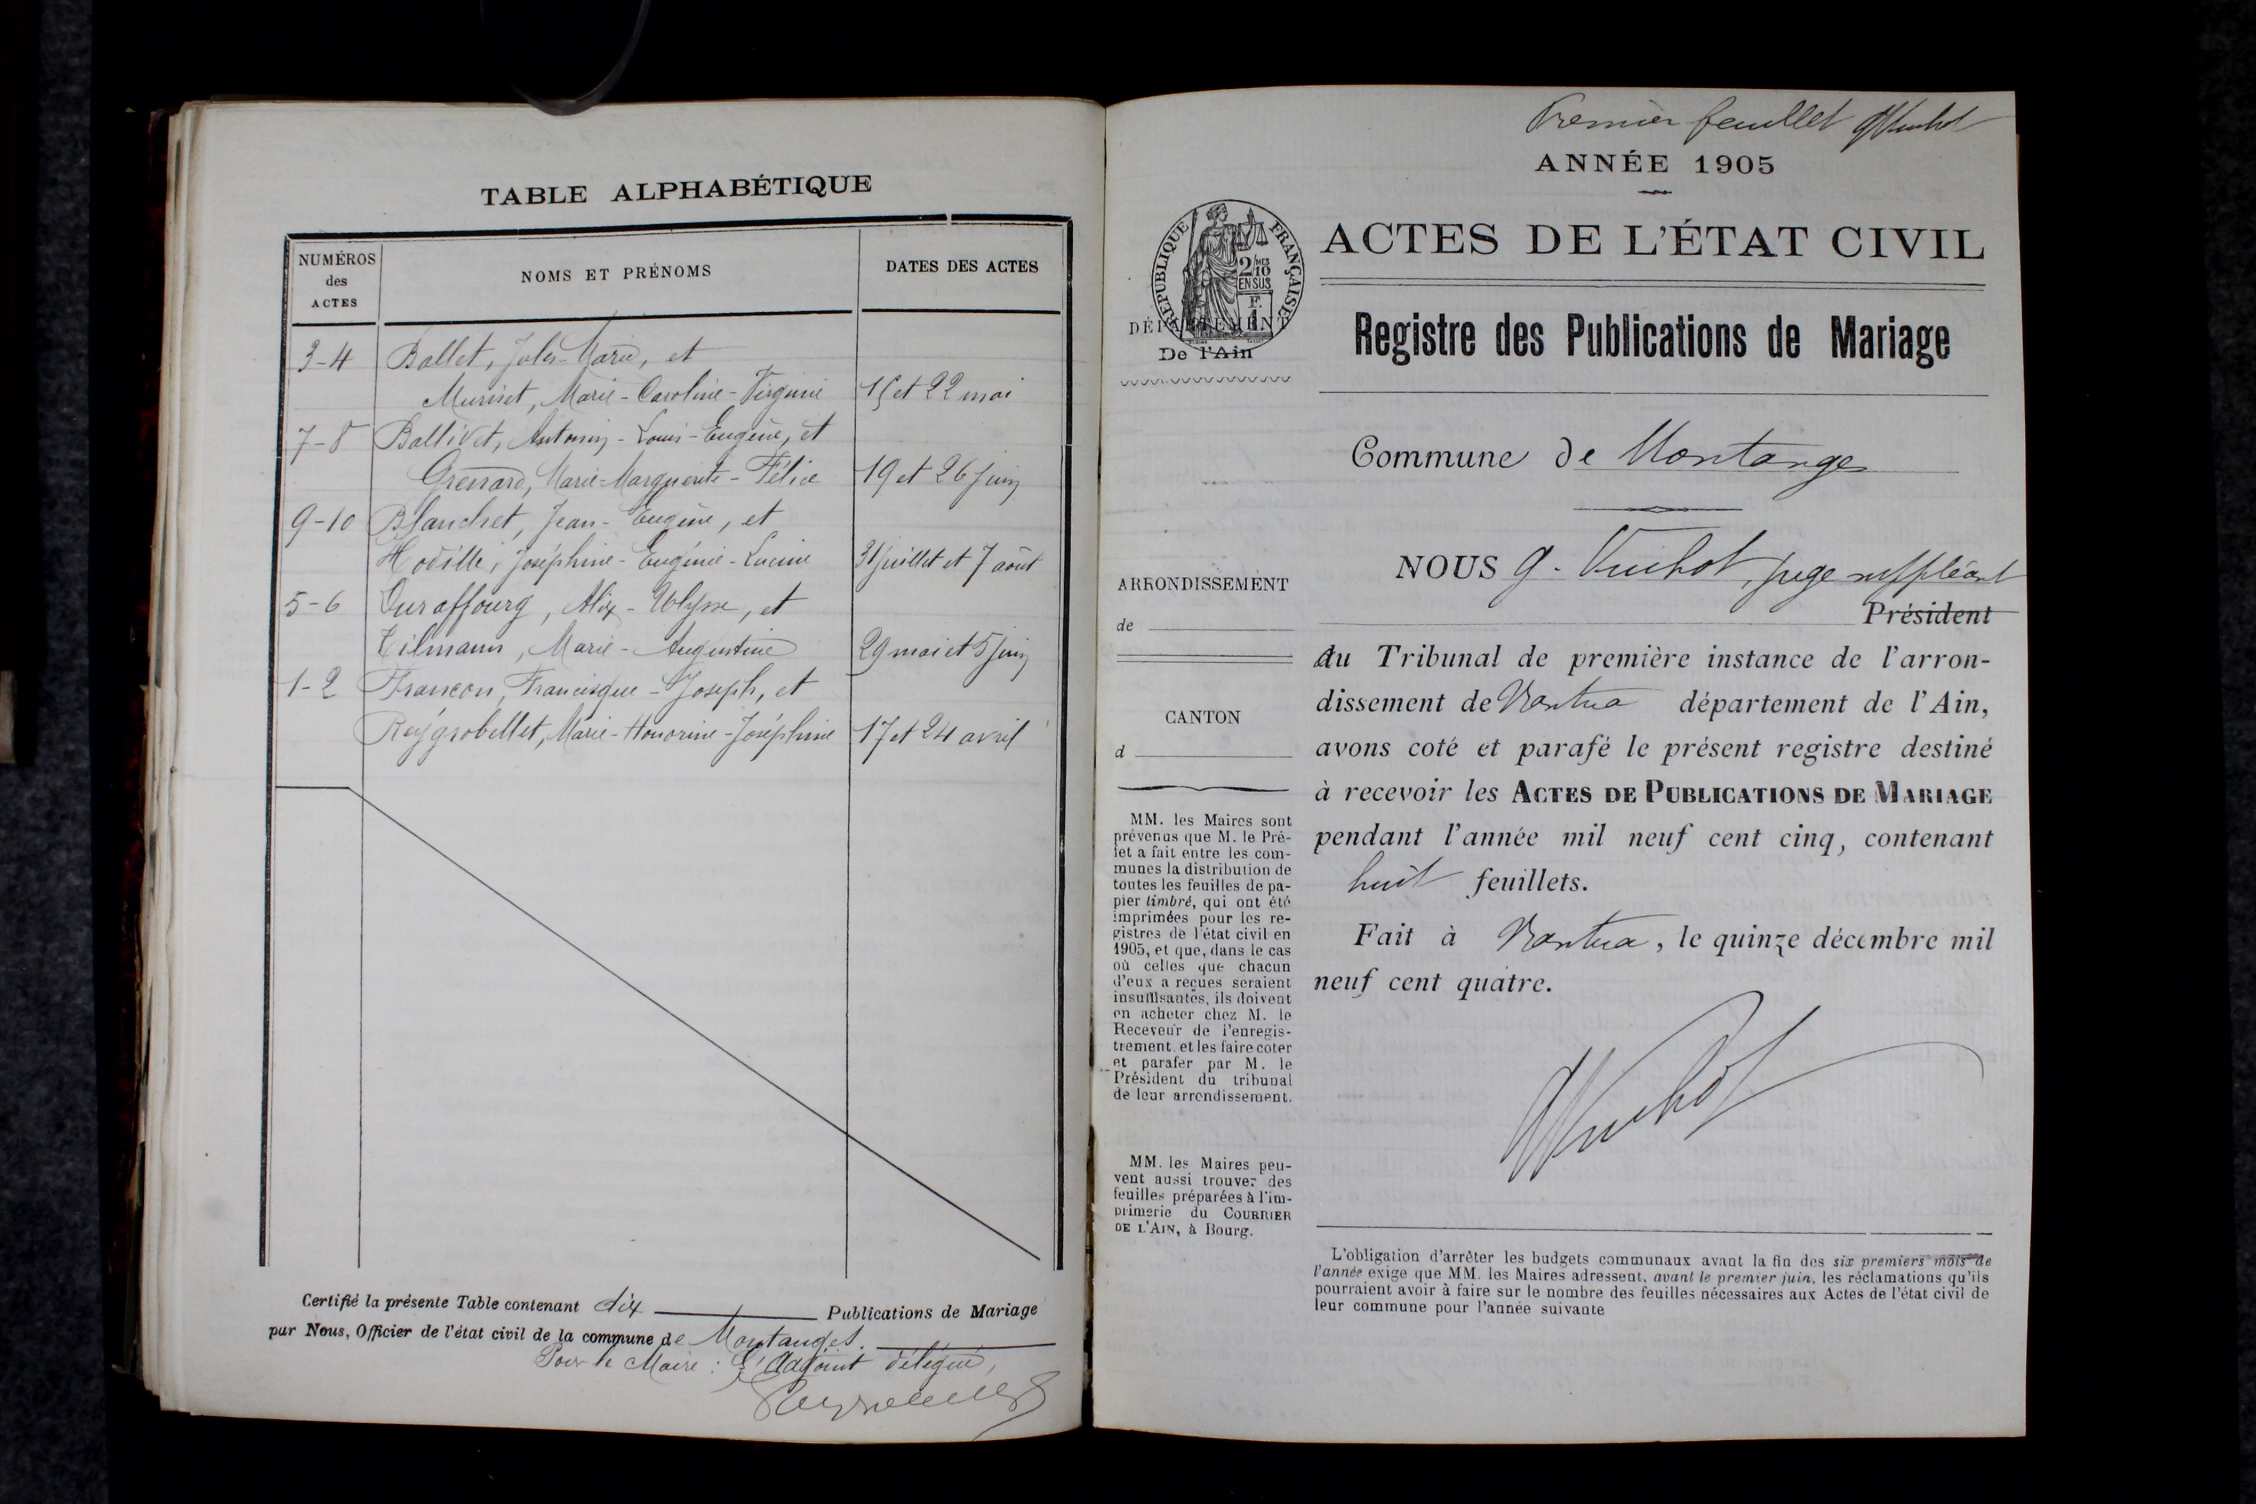 TABLE ALPHABÉTIQUE
NUMÉROS des ACTES
NOMS ET PRÉNOMS
DATES DES ACTES
3-4 Ballet, Jules-Marie, et
Muriset, Marie-Caroline-Virginie 15 et 22 mai
7-8 Ballivet, Antonin-Louis-Eugène, et
Grenard, Marie-Marguerite-Félice 19 et 26 juin
9-10 Blanchet, Jean-Eugène, et
Hodille, Joséphine-Eugénie-Lucine 31 juillet et 7 août
5-6 Duraffourg, Alix-Ulysse, et
Tilmann, Marie-Augustine 29 mai et 5 juin
1-2 Françon, Francisque-Joseph, et
Reygrobellet, Marie-Honorine-Joséphine 17 et 24 avril
Certifié la présente Table contenant dix Publications de Mariage
par Nous, Officier de l'état civil de la commune de Montanges.
Pour le Maire : L'Adjoint délégué,
Premier feuillet GVuihot
ANNÉE 1905
ACTES DE L'ÉTAT CIVIL
RÉPUBLIQUE FRANÇAISE
2/10 MES
EN SUS
F. 1
DÉPARTEMENT
De l'Ain
Registre des Publications de Mariage
Commune de Montanges
NOUS G. Vuihot, juge suppléant
Président
du Tribunal de première instance de l'arron-
dissement de Nantua département de l'Ain,
avons coté et parafé le présent registre destiné
à recevoir les ACTES DE PUBLICATIONS DE MARIAGE
pendant l'année mil neuf cent cinq, contenant
huit feuillets.
Fait à Nantua, le quinze décembre mil
neuf cent quatre.
GVuihot
ARRONDISSEMENT
de
CANTON
d
MM. les Maires sont
prévenus que M. le Pré-
fet a fait entre les com-
munes la distribution de
toutes les feuilles de pa-
pier timbré, qui ont été
imprimées pour les re-
gistres de l'état civil en
1905, et que, dans le cas
où celles que chacun
d'eux a reçues seraient
insuffisantes, ils doivent
en acheter chez M. le
Receveur de l'enregis-
trement, et les faire coter
et parafer par M. le
Président du tribunal
de leur arrondissement.
MM. les Maires peu-
vent aussi trouver des
feuilles préparées à l'im-
primerie du COURRIER
DE L'AIN, à Bourg.
L'obligation d'arrêter les budgets communaux avant la fin des six premiers mois de
l'année exige que MM. les Maires adressent, avant le premier juin, les réclamations qu'ils
pourraient avoir à faire sur le nombre des feuilles nécessaires aux Actes de l'état civil de
leur commune pour l'année suivante